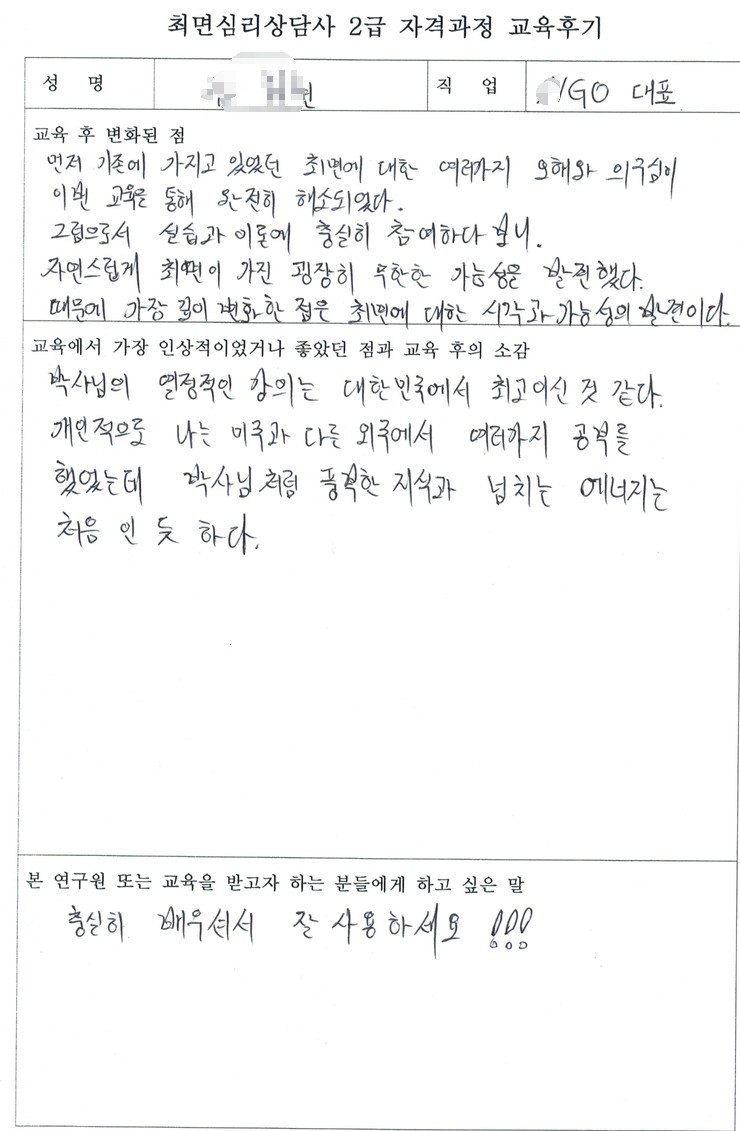 최면심리상담사 2급 자격과정 교육후기
성 명
직 업 GO 대표
교육 후 변화된 점
먼저 기존에 가지고 있었던 최면에 대한 여러가지 오해와 의구심이
이번 교육을 통해 완전히 해소되었다.
그럼으로서 실습과 이론에 충실히 참여하다 보니.
자연스럽게 최면이 가진 굉장히 무한한 가능성을 발견했다.
때문에 가장 깊이 변화한 점은 최면에 대한 시각과 가능성의 발견이다.
교육에서 가장 인상적이었거나 좋았던 점과 교육 후의 소감
박사님의 열정적인 강의는 대한민국에서 최고이신 것 같다.
개인적으로 나는 미국과 다른 외국에서 여러가지 공부를
했었는데 박사님처럼 풍척한 지식과 넘치는 에너지는
처음 인 듯 하다.
본 연구원 또는 교육을 받고자 하는 분들에게 하고 싶은 말
충실히 배우셔서 잘 사용하세요 !!!